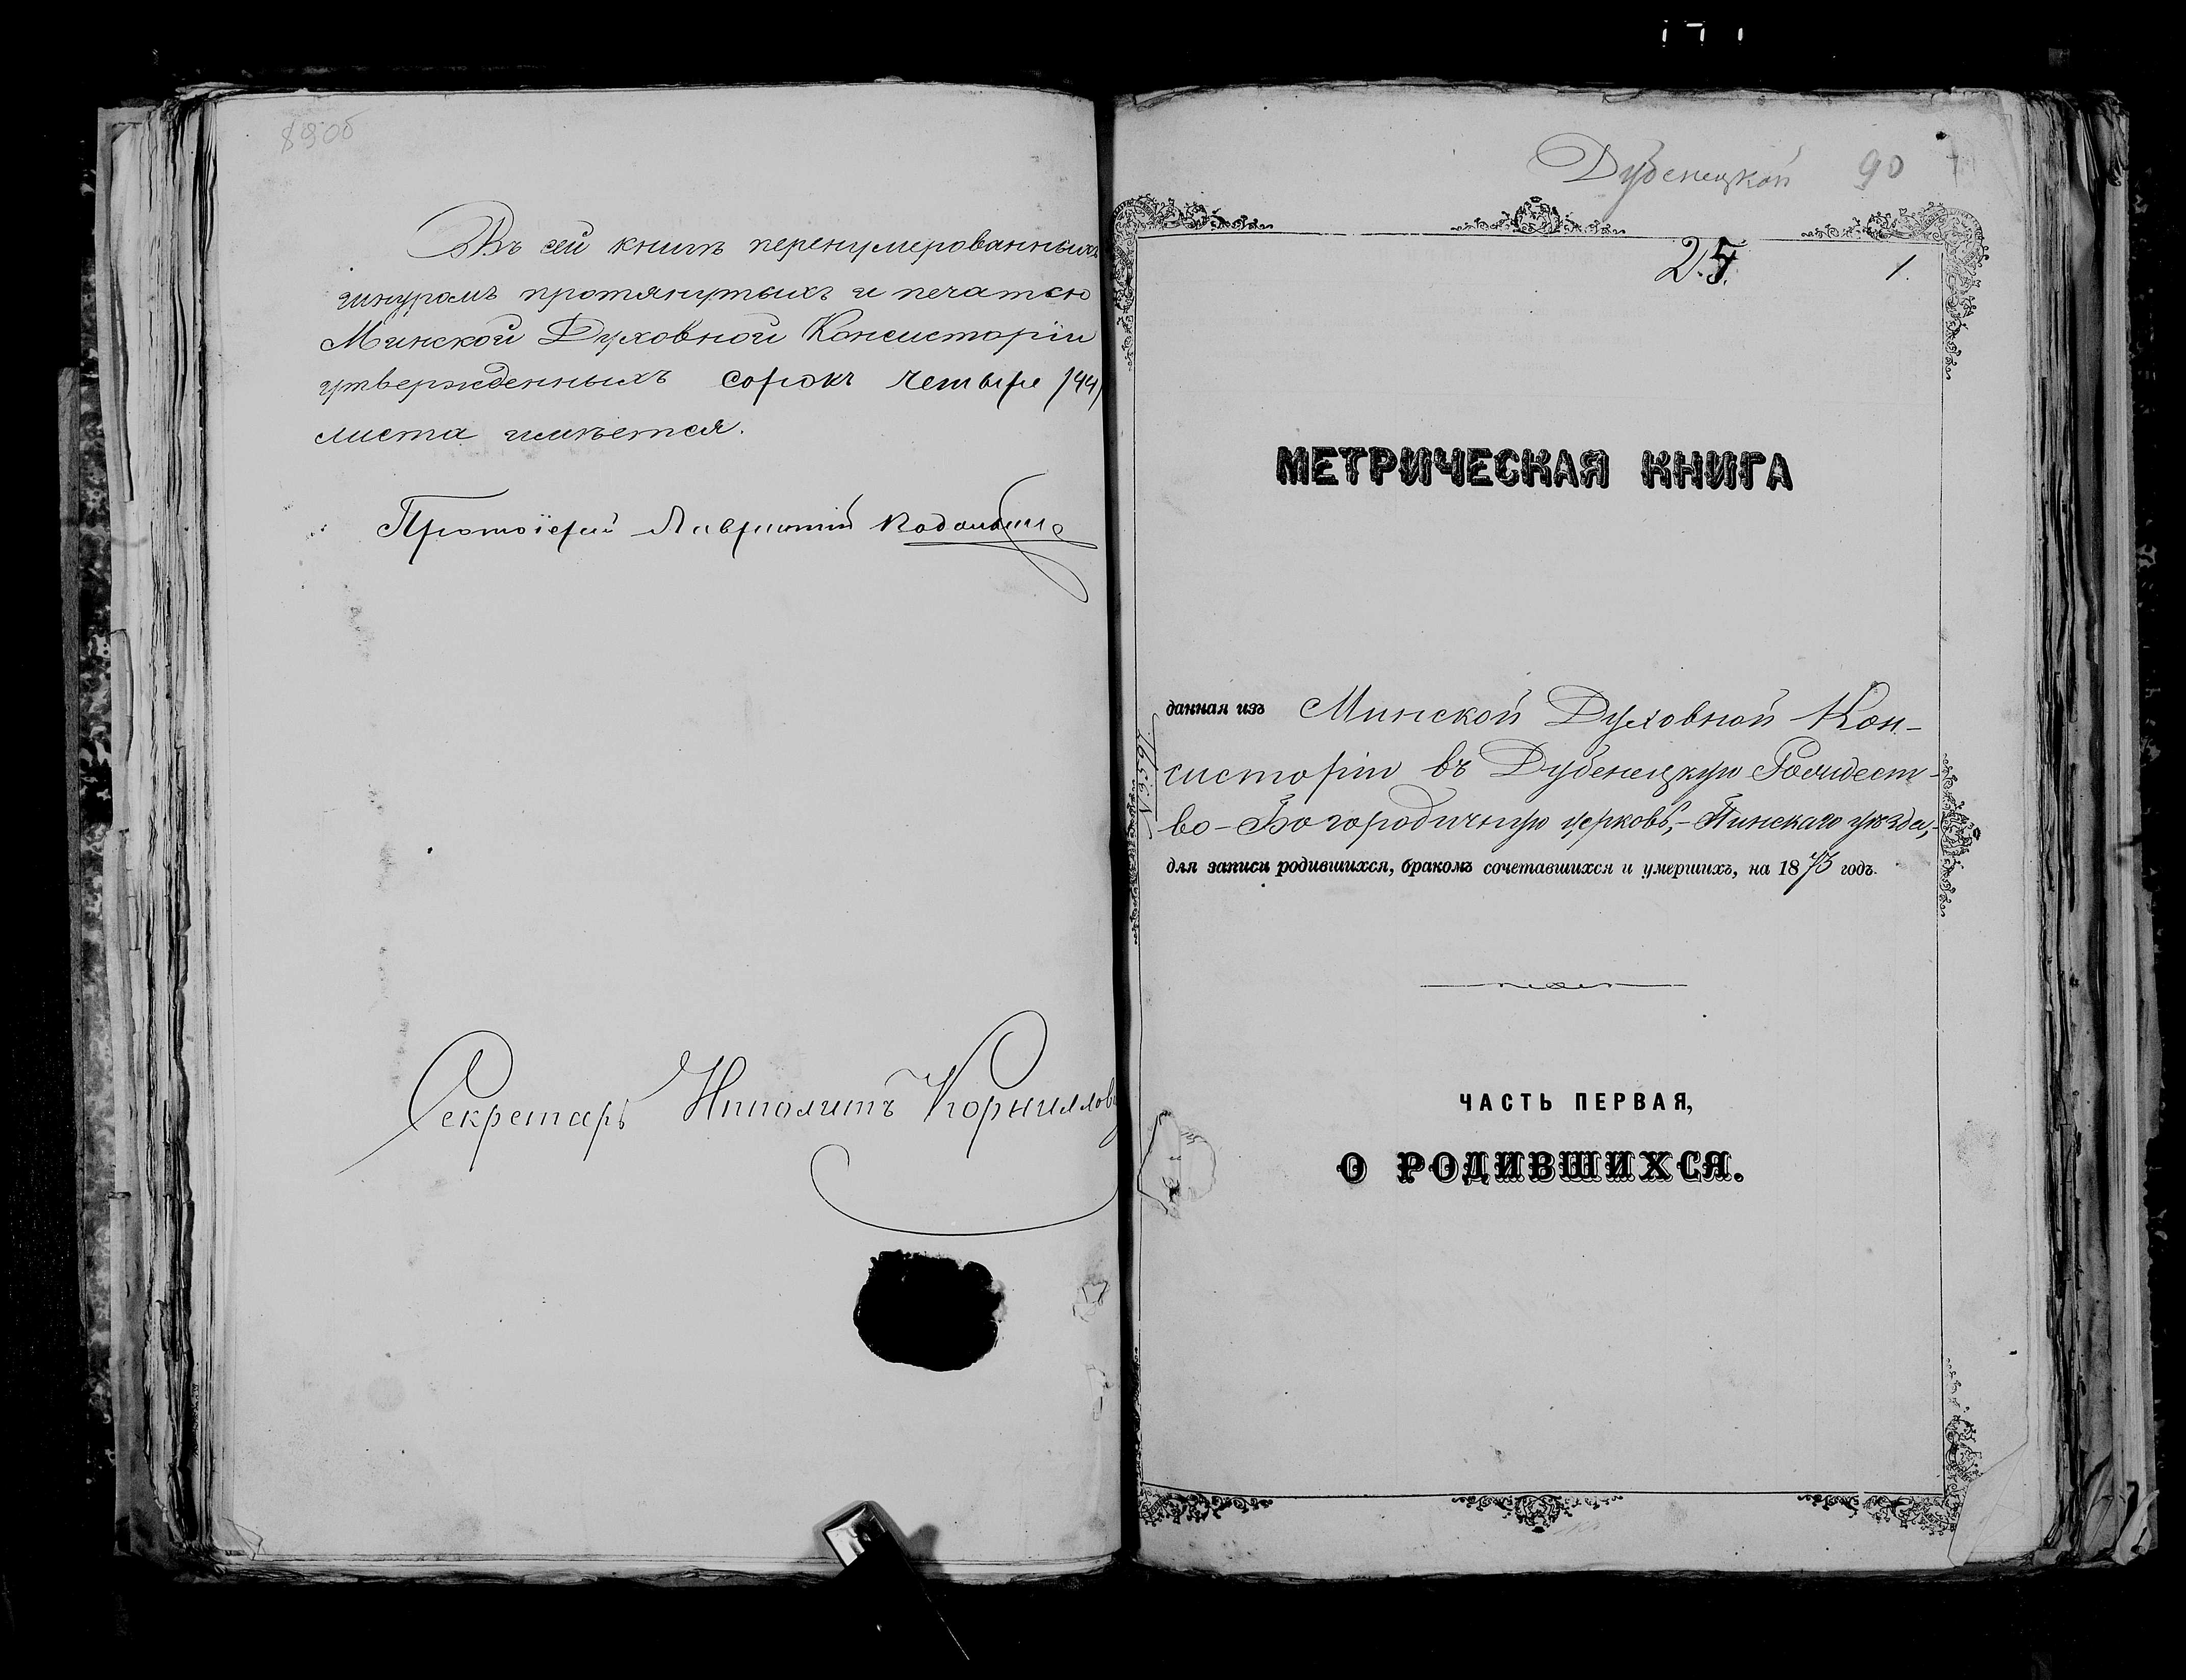 89об
Въ сей книгѣ перенумерованныхъ
шнуромъ протянутыхъ и печатью
Минской Духовной Консисторіи
утвержденныхъ сорокъ четыре /44/
листа имѣется.
Протоіерей Лаврентій
Секретарь Ипполитъ Корнилов
Дубенецкой 90
25. 1.
МЕТРИЧЕСКАЯ КНИГА
данная изъ Минской Духовной Кон-
систоріи въ Дубенецкую Рождест-
во-Богородичную церковь,- Пинскаго уѣзда,-
для записи родившихся, бракомъ сочетавшихся и умершихъ, на 1873 годъ.
ЧАСТЬ ПЕРВАЯ,
О РОДИВШИХСЯ.